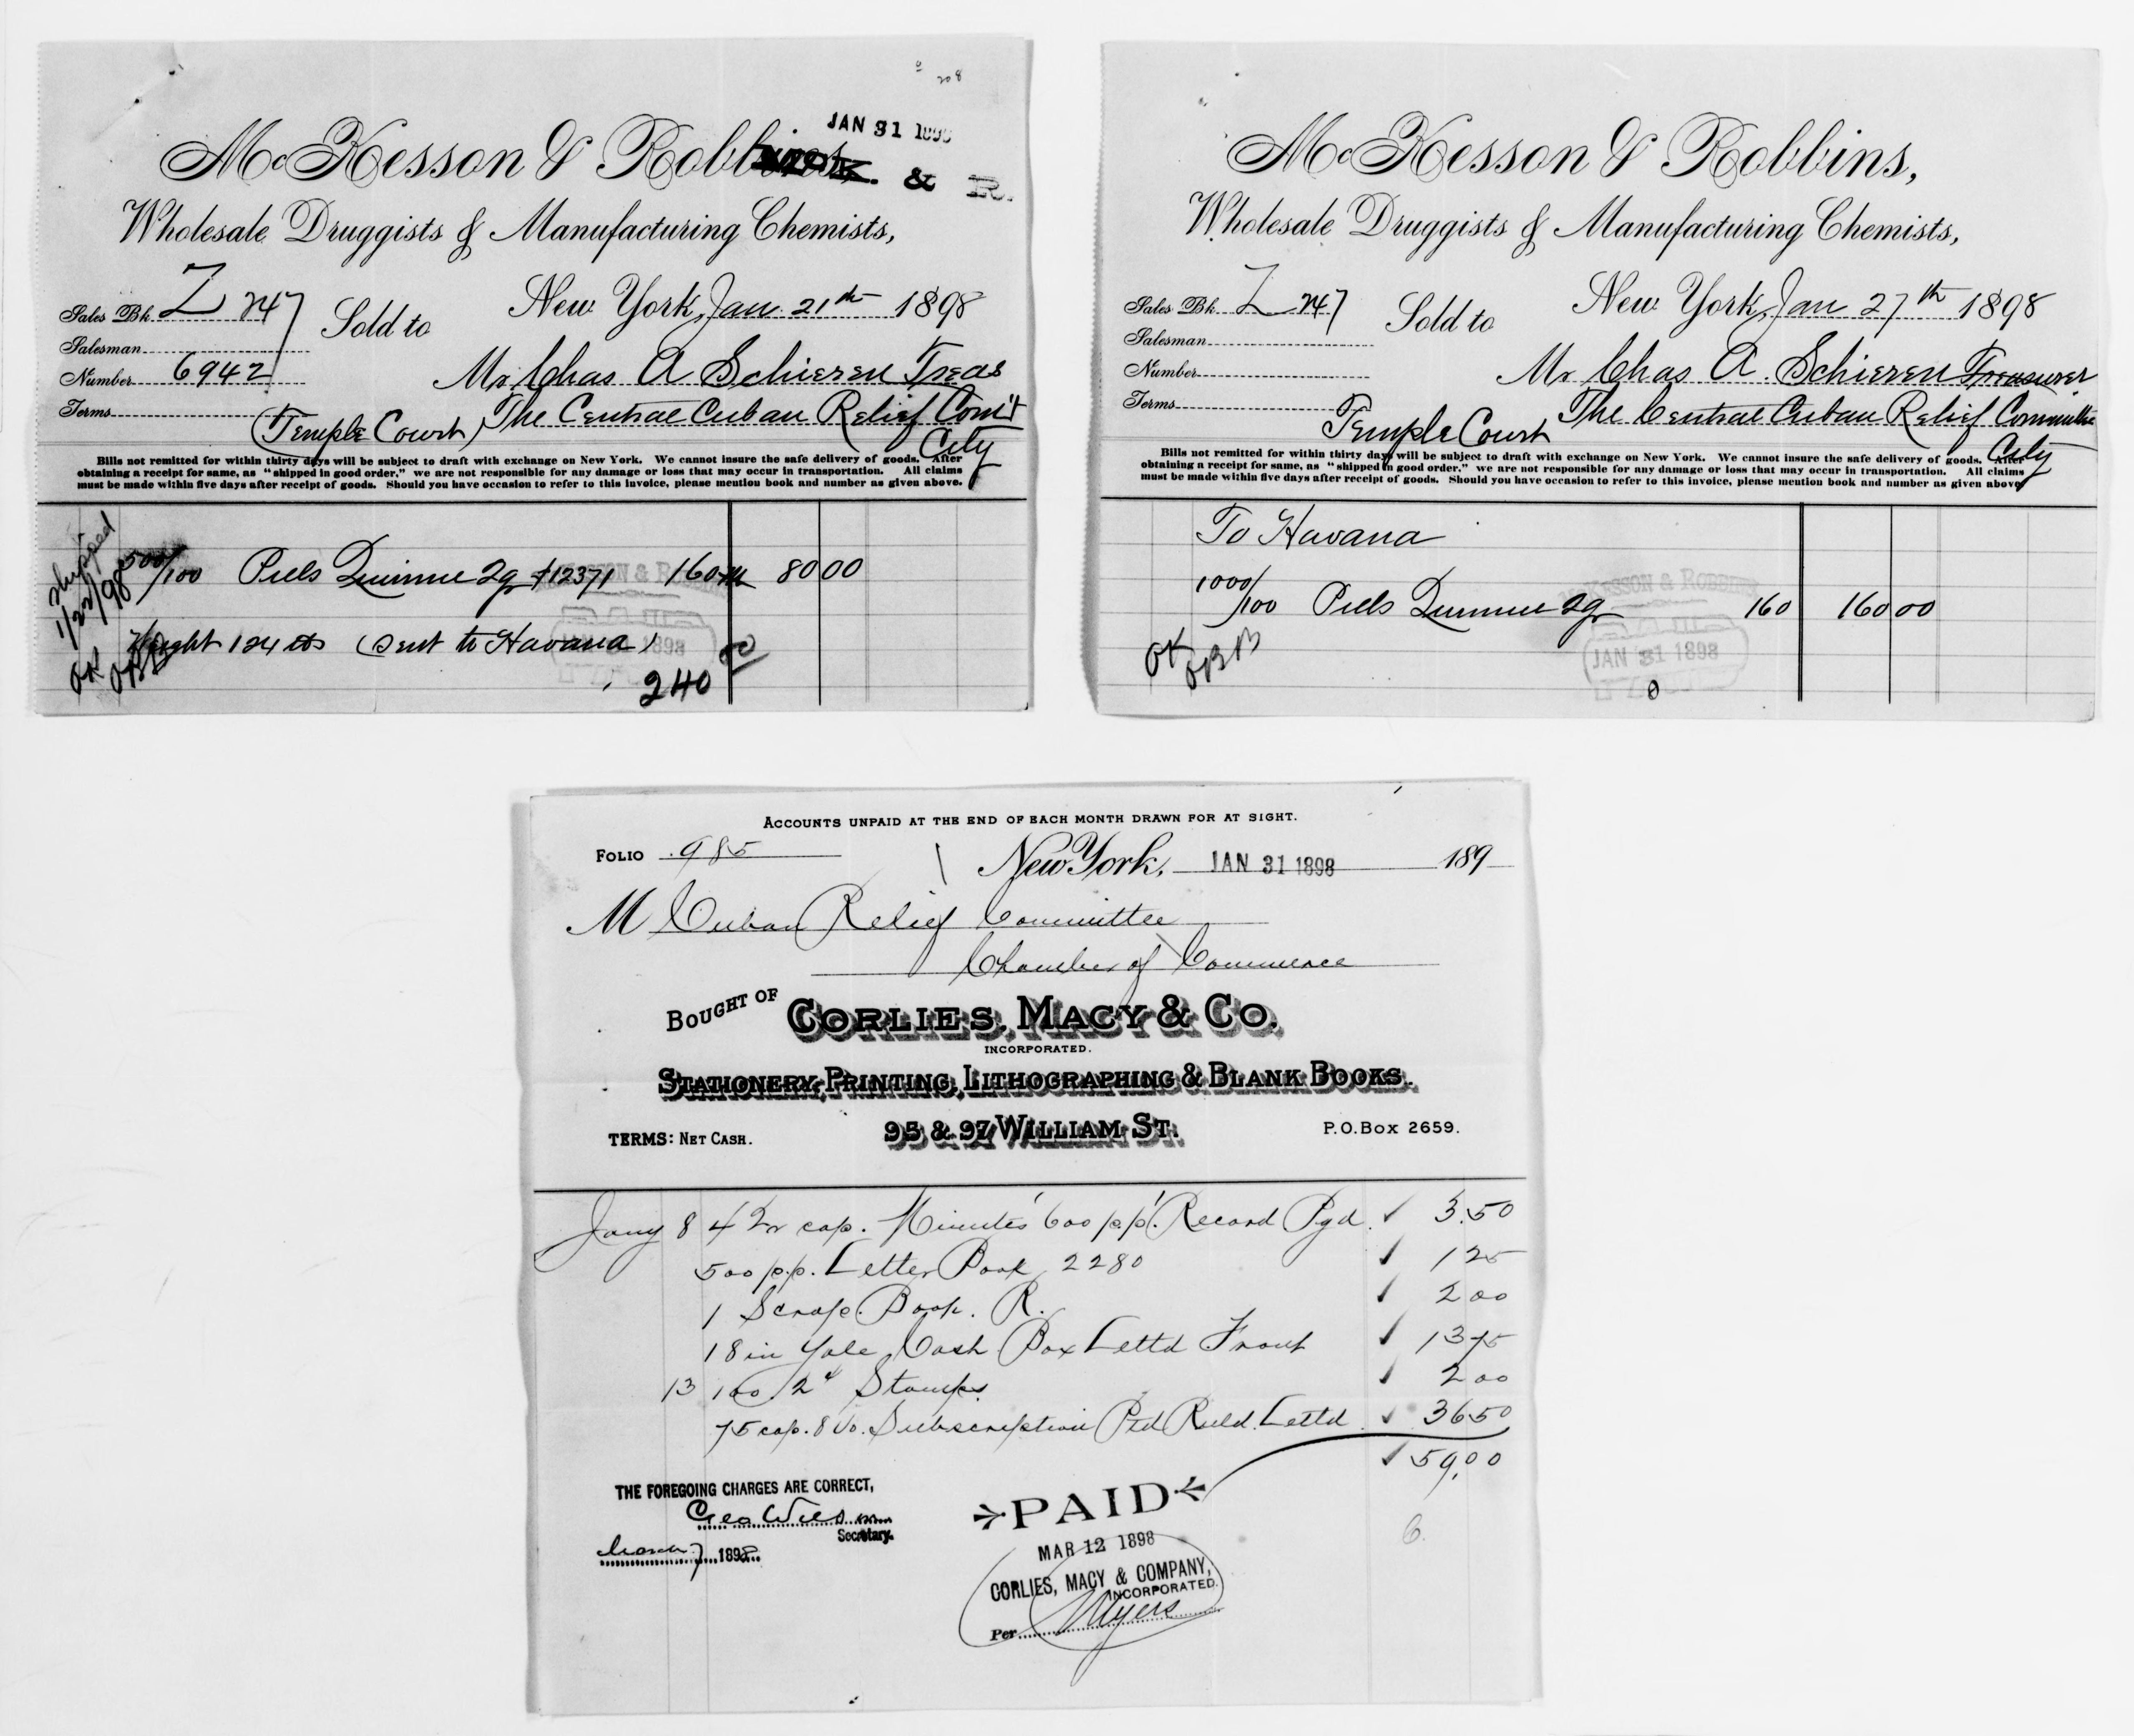 208
JAN 31 1898
McKesson & Robbins
& R.
Wholesale Druggists & Manufacturing Chemists,
Sales Bk. Z 247 Sold to New York, Jan 21th 1898
Salesman
Number 6942 Mr Chas A Schieren Treas
Terms (Temple Court) The Central Cuban Relief Com't
City
Bills not remitted for within thirty days will be subject to draft with exchange on New York. We cannot insure the safe delivery of goods. After
obtaining a receipt for same, as "shipped in good order," we are not responsible for any damage or loss that may occur in transportation. All claims
must be made within five days after receipt of goods. Should you have occasion to refer to this invoice, please mention book and number as given above.
Shipped
1/22/98
OK
500/100 Pills Quinine 2gr 12371 160 80 00
Weight 124 lbs (Sent to Havana)
240
McKesson & Robbins,
Wholesale Druggists & Manufacturing Chemists,
Sales Bk. Z 247 Sold to New York, Jan 27th 1898
Salesman
Number Mr Chas A Schieren Treasurer
Terms Temple Court The Central Cuban Relief Committee
City
Bills not remitted for within thirty days will be subject to draft with exchange on New York. We cannot insure the safe delivery of goods. After
obtaining a receipt for same, as "shipped in good order," we are not responsible for any damage or loss that may occur in transportation. All claims
must be made within five days after receipt of goods. Should you have occasion to refer to this invoice, please mention book and number as given above
To Havana
1000/100 Pills Quinine 2gr 160 160 00
OK
McKesson & Robbins
PAID
JAN 31 1898
Accounts unpaid at the end of each month drawn for at sight.
Folio 985 New York, JAN 31 1898 189
M Cuban Relief Committee
Chamber of Commerce
Bought of Corlies, Macy & Co.
INCORPORATED.
Stationery, Printing, Lithographing & Blank Books.
TERMS: Net Cash. 95 & 97 William St. P.O. Box 2659.
Jany 8 4 Qr cap. Minutes 600 p.p. Record Pgd. 3.50
500 p.p. Letter Book 2280 1 25
1 Scrap Book. R. 2 00
18 in Yale Cash Box Lettd Front 13 75
13 100 2¢ Stamps 2 00
75 cap. 8vo. Subscription Ptd Ruld. Lettd 36 50
59.00
THE FOREGOING CHARGES ARE CORRECT,
Geo Wilson
Secretary.
March 7 1898
PAID
MAR 12 1898
CORLIES, MACY & COMPANY,
INCORPORATED.
Per Myers